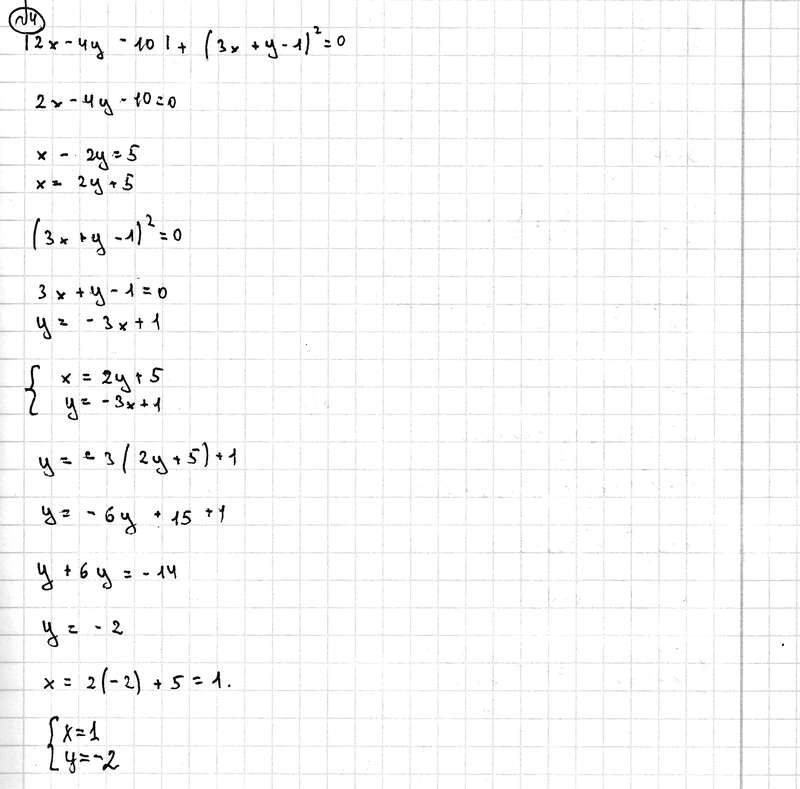 №4
|2x - 4y - 10| + (3x + y - 1)² = 0
2x - 4y - 10 = 0
x - 2y = 5
x = 2y + 5
(3x + y - 1)² = 0
3x + y - 1 = 0
y = -3x + 1
{ x = 2y + 5
y = -3x + 1
y = -3(2y + 5) + 1
y = -6y + 15 + 1
y + 6y = -14
y = -2
x = 2(-2) + 5 = 1.
{ x = 1
y = -2